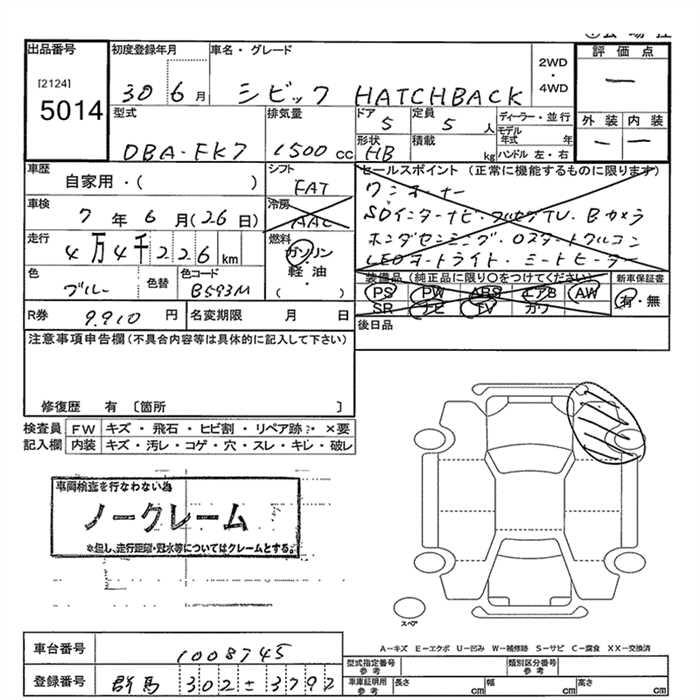 出品番号
[2124]
5014
初度登録年月
30 6月
車名・グレード
シビック HATCHBACK
2WD
・
4WD
評価点
―
外装 内装
― ―
型式
DBA-FK7
排気量
1500cc
ドア
5
定員
5人
ディーラー・並行
モデル
年式 年
形状
HB
積載
kg
ハンドル 左・右
車歴
自家用・( )
シフト
FAT
車検
7年6月(26日)
冷房
AAC
走行
4万4千226km
燃料
ガソリン
・
軽油
( )
色
ブルー
色替
色コード
B593M
セールスポイント(正常に機能するものに限ります)
ワンオーナー
SDインターナビ・フルセグTV・Bカメラ
ホンダセンシング・
LEDオートライト・シートヒーター
装備品(純正品に限り○をつけてください)
新車保証書
PS PW ABS エアB AW
SR ナビ TV カワ
有・無
R券
9,910円
名変期限 月 日
後日品
注意事項申告欄(不具合内容等は具体的に記入して下さい)
修復歴 有 〔箇所 〕
検査員
記入欄
FW キズ・飛石・ヒビ割・リペア跡・×要
内装 キズ・汚レ・コゲ・穴・スレ・キレ・破レ
車両検査を行なわない為
ノークレーム
但し、走行距離・冠水等についてはクレームとする。
スペア
A-キズ E-エクボ U-凹み W-補修跡 S-サビ C-腐食 XX-交換済
車台番号
1008745
登録番号
群馬 302
型式指定番号
参考
類別区分番号
参考
車庫証明用
参考
長さ cm
幅 cm
高さ cm